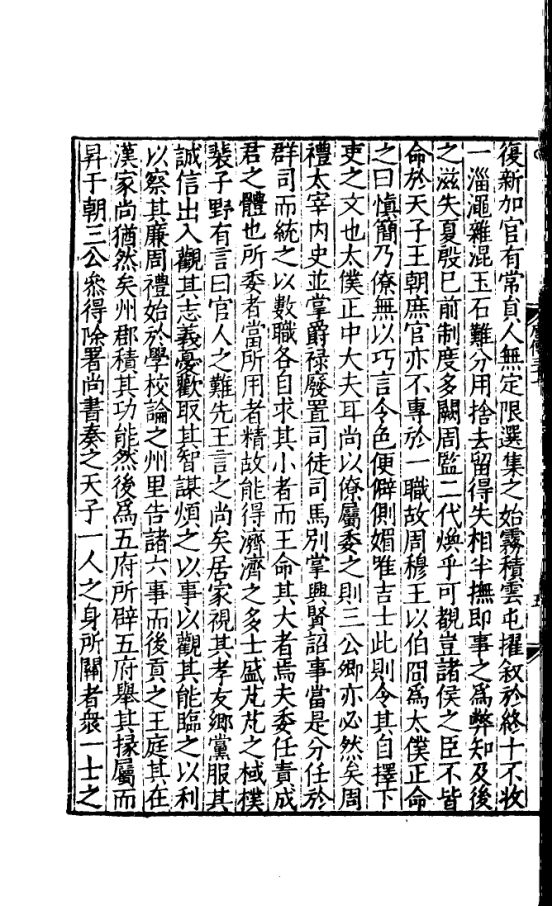 復新加官有常員人無定限選集之始霧積雲屯擢敘於終十不收
一淄澠雜混玉石難分用捨去留得失相半撫即事之爲弊知及後
之滋失夏殷已前制度多闕周監二代煥乎可觀豈諸侯之臣不皆
命於天子王朝庶官亦不專於一職故周穆王以伯冏爲太僕正命
之曰慎簡乃僚無以巧言令色便僻側媚唯吉士此則令其自擇下
吏之文也太僕正中大夫耳尚以僚屬委之則三公卿亦必然矣周
禮太宰内史並掌爵禄廢置司徒司馬別掌興賢詔事當是分任於
群司而統之以數職各自求其小者而王命其大者焉夫委任責成
君之體也所委者當所用者精故能得濟濟之多士盛芃芃之棫樸
裴子野有言曰官人之難先王言之尚矣居家視其孝友鄉黨服其
誠信出入觀其志義憂歡取其智謀煩之以事以觀其能臨之以利
以察其廉周禮始於學校論之州里告諸六事而後貢之王庭其在
漢家尚猶然矣州郡積其功能然後爲五府所辟五府舉其掾屬而
昇于朝三公叅得除署尚書奏之天子一人之身所關者衆一士之